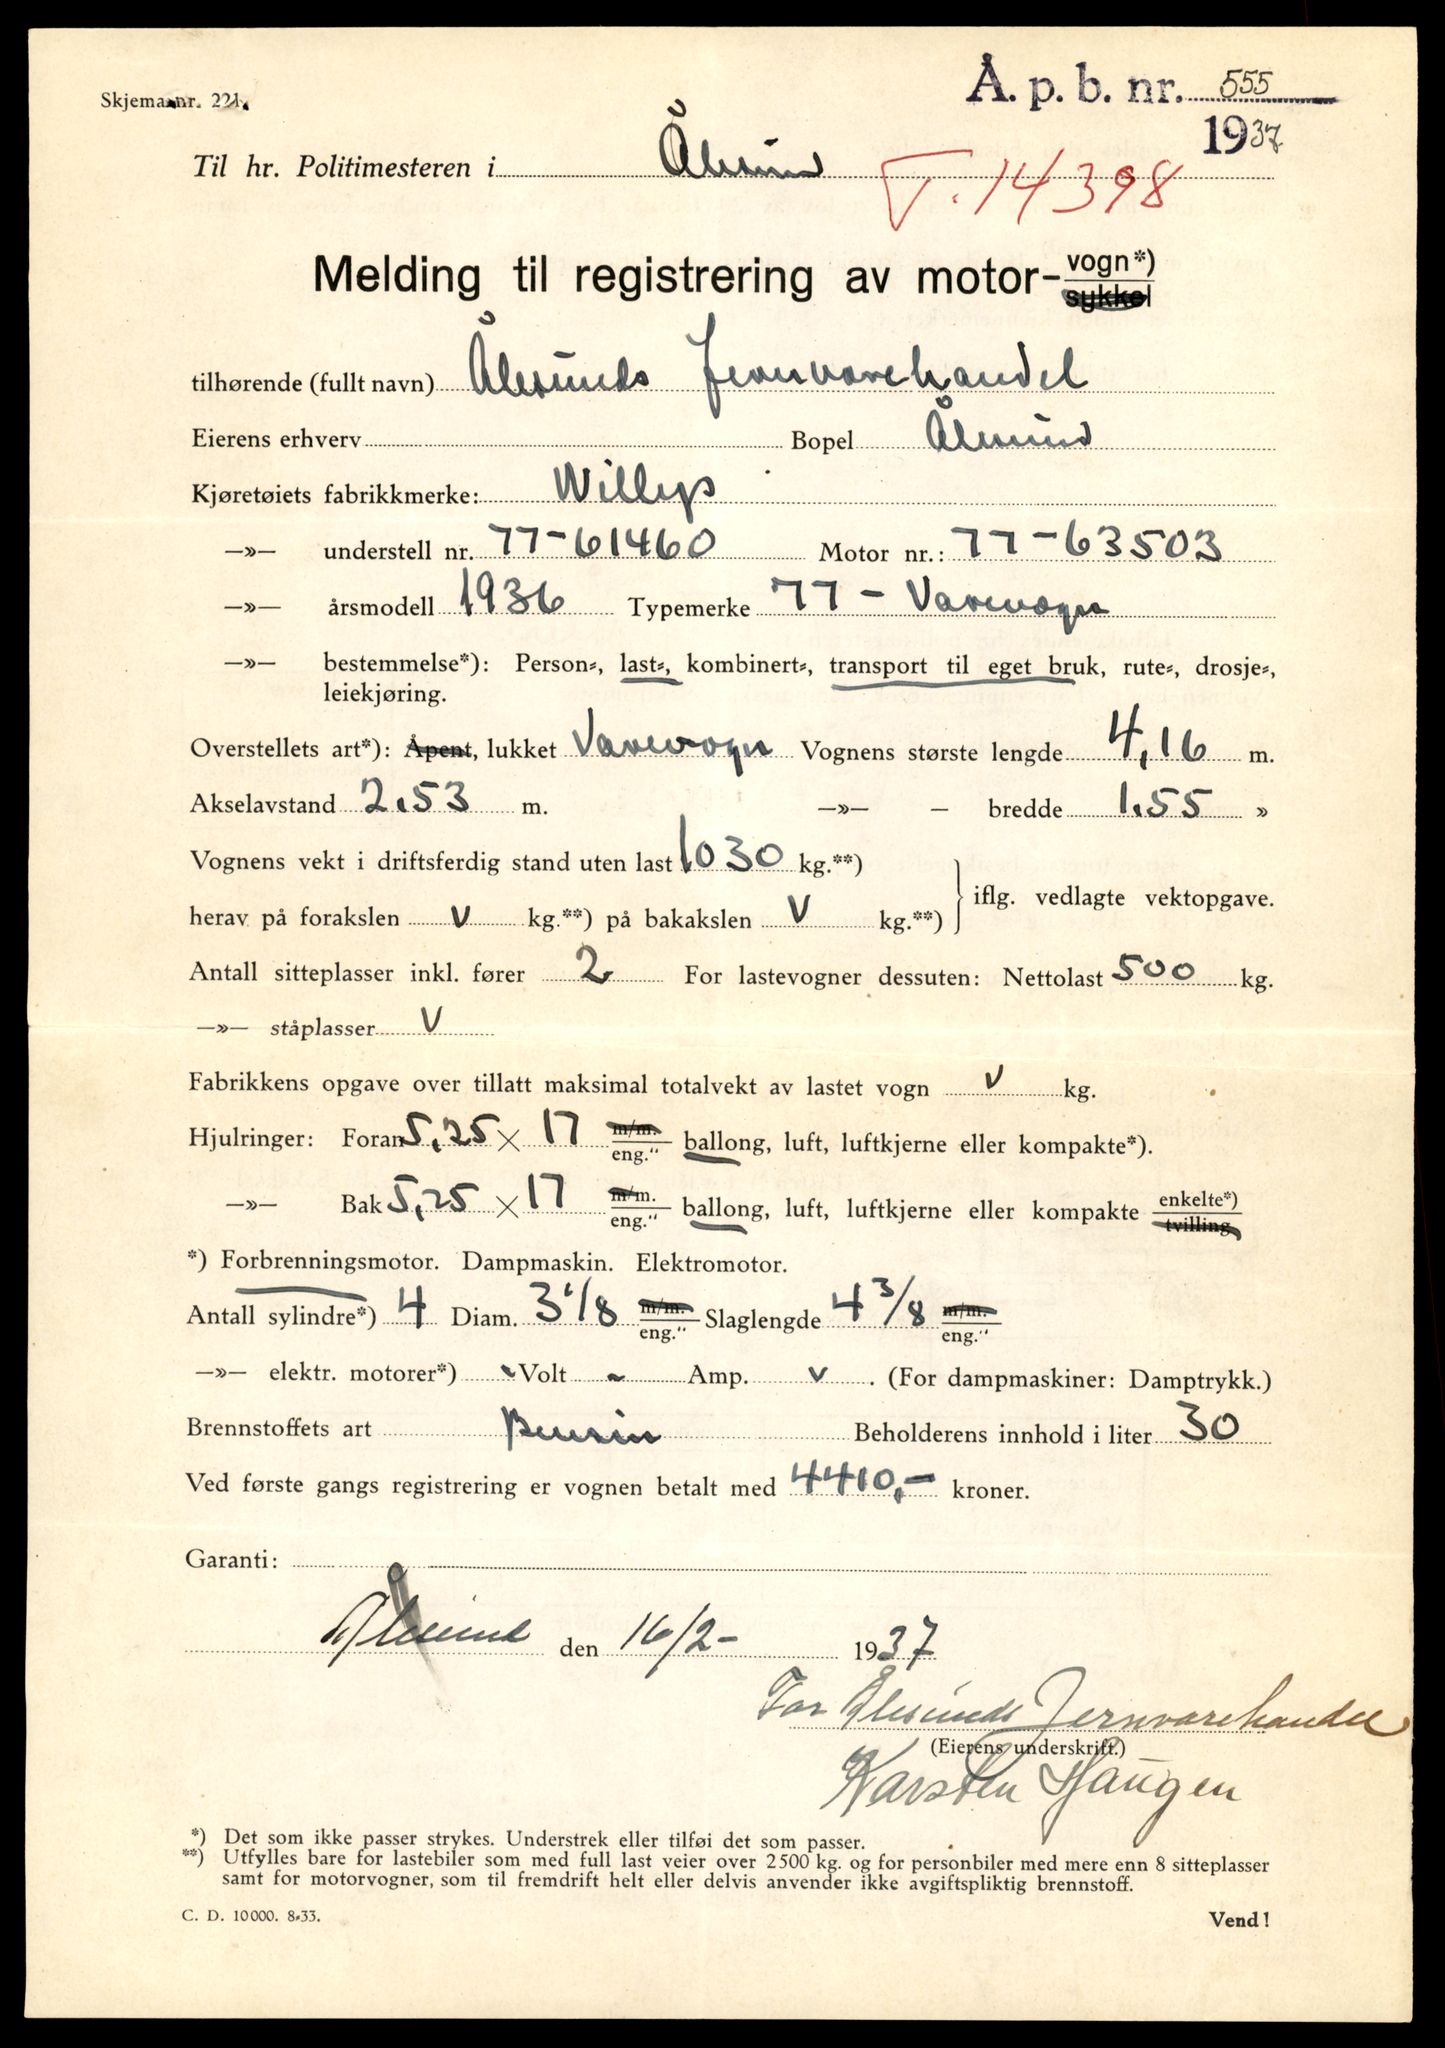 Skjema nr. 221.
Å. p. b. nr. 555
1937
Til hr. Politimesteren i Ålesund
T. 14398
Melding til registrering av motor-vogn*)
sykkel
tilhørende (fullt navn) Ålesunds Jernvarehandel
Eierens erhverv Bopel Ålesund
Kjøretøiets fabrikkmerke: Willys
—»— understell nr. 77-61460 Motor nr.: 77-63503
—»— årsmodell 1936 Typemerke 77 - Varevogn
—»— bestemmelse*): Person-, last-, kombinert-, transport til eget bruk, rute-, drosje-,
leiekjøring.
Overstellets art*): Åpent, lukket Varevogn Vognens største lengde 4,16 m.
Akselavstand 2.53 m. —»— — bredde 1.55 »
Vognens vekt i driftsferdig stand uten last 1030 kg.**)
herav på forakslen v kg.**) på bakakslen v kg.**) iflg. vedlagte vektopgave.
Antall sitteplasser inkl. fører 2 For lastevogner dessuten: Nettolast 500 kg.
—»— ståplasser v
Fabrikkens opgave over tillatt maksimal totalvekt av lastet vogn v kg.
Hjulringer: Foran 5,25 × 17 m/m. eng." ballong, luft, luftkjerne eller kompakte*).
—»— Bak 5,25 × 17 m/m. eng." ballong, luft, luftkjerne eller kompakte enkelte*) tvilling
*) Forbrenningsmotor. Dampmaskin. Elektromotor.
Antall sylindre*) 4 Diam. 3 1/8 m/m. eng." Slaglengde 4 3/8 m/m. eng."
—»— elektr. motorer*) v Volt ~ Amp. v . (For dampmaskiner: Damptrykk.)
Brennstoffets art Bensin Beholderens innhold i liter 30
Ved første gangs registrering er vognen betalt med 4410,- kroner.
Garanti:
Ålesund den 16/2- 1937
For Ålesunds Jernvarehandel
(Eierens underskrift.)
Karsten Haugen
*) Det som ikke passer strykes. Understrek eller tilføi det som passer.
**) Utfylles bare for lastebiler som med full last veier over 2500 kg. og for personbiler med mere enn 8 sitteplasser
samt for motorvogner, som til fremdrift helt eller delvis anvender ikke avgiftspliktig brennstoff.
C. D. 10000. 8-33.
Vend!